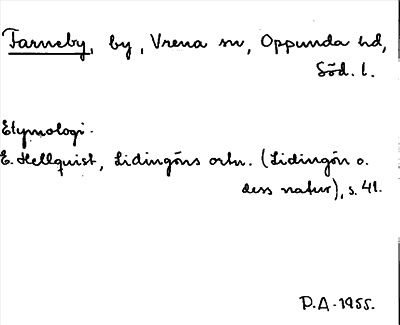 Farneby, by, Vrena sn, Oppunda hd,
Söd. l.
Etymologi.
E. Hellquist, Lidingöns ortn. (Lidingön o.
dess natur), s. 41.
P.A. 1955.